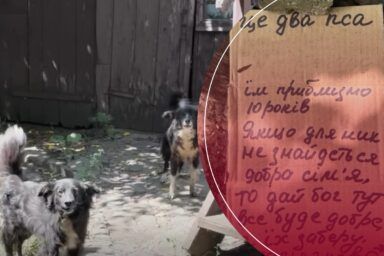 це два пса
їм приблизно
10 років
Якщо для них
не знайдеться
добра сім'я,
то дай бог тут
все буде добре
їх заберу.